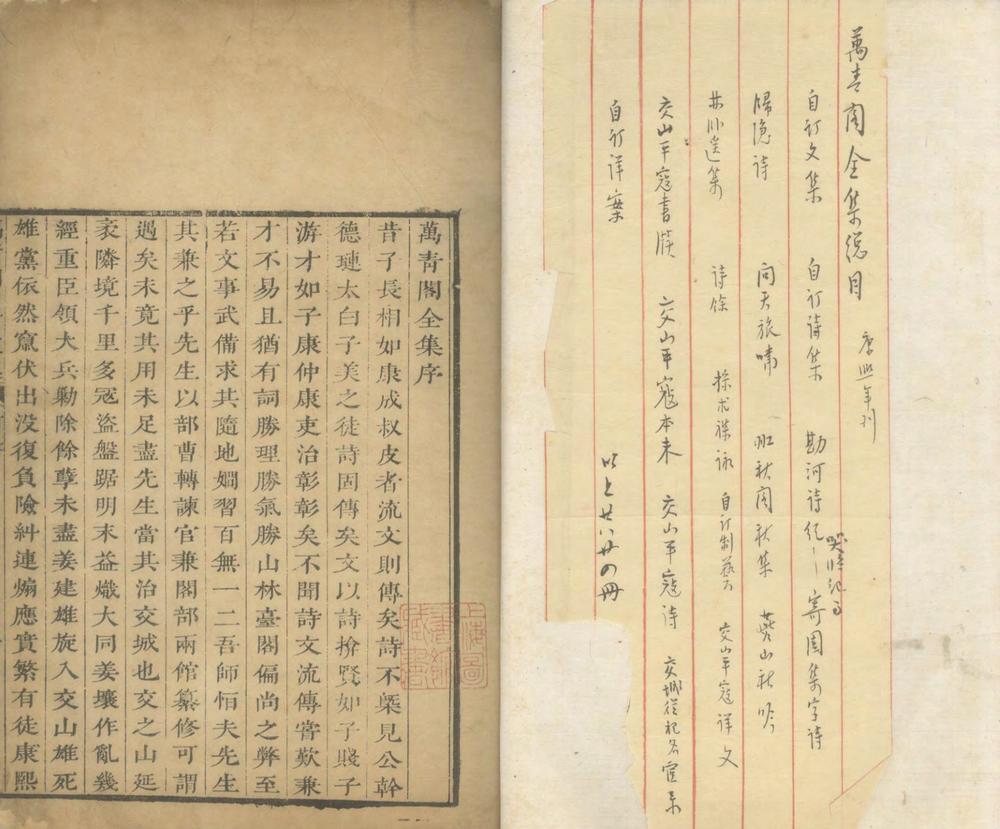 萬青阁全集總目
康熙年刋
自訂文集 自訂诗集 勘河诗纪 寄園集字诗
歸隐诗 向天旅嘯 秋集 燕山秋吟
诗餘 自訂制藝 交山平寇详文
交山平寇書牍 交山平寇本末 交山平寇诗 交城從祀名宦录
自訂详案
以上廿八廿四冊
萬青閣全集序
昔子長相如康成叔皮者流文則傳矣詩不槩見公幹
德璉太白子美之徒詩固傳矣文以詩揜賢如子賤子
游才如子康仲康吏治彰彰矣不聞詩文流傳甞歎兼
才不易且猶有詞勝理勝氣勝山林臺閣偏尚之弊至
若文事武備求其隨地嫺習百無一二吾師恒夫先生
其兼之乎先生以部曹轉諫官兼閣部兩館纂修可謂
遇矣未竟其用未足盡先生當其治交城也交之山延
袤隣境千里多冦盜盤踞明末益熾大同姜壤作亂幾
經重臣領大兵勦除餘孽未盡姜建雄旋入交山雄死
雄黨依然竄伏出没復負險糾連煽應實繁有徒康熙